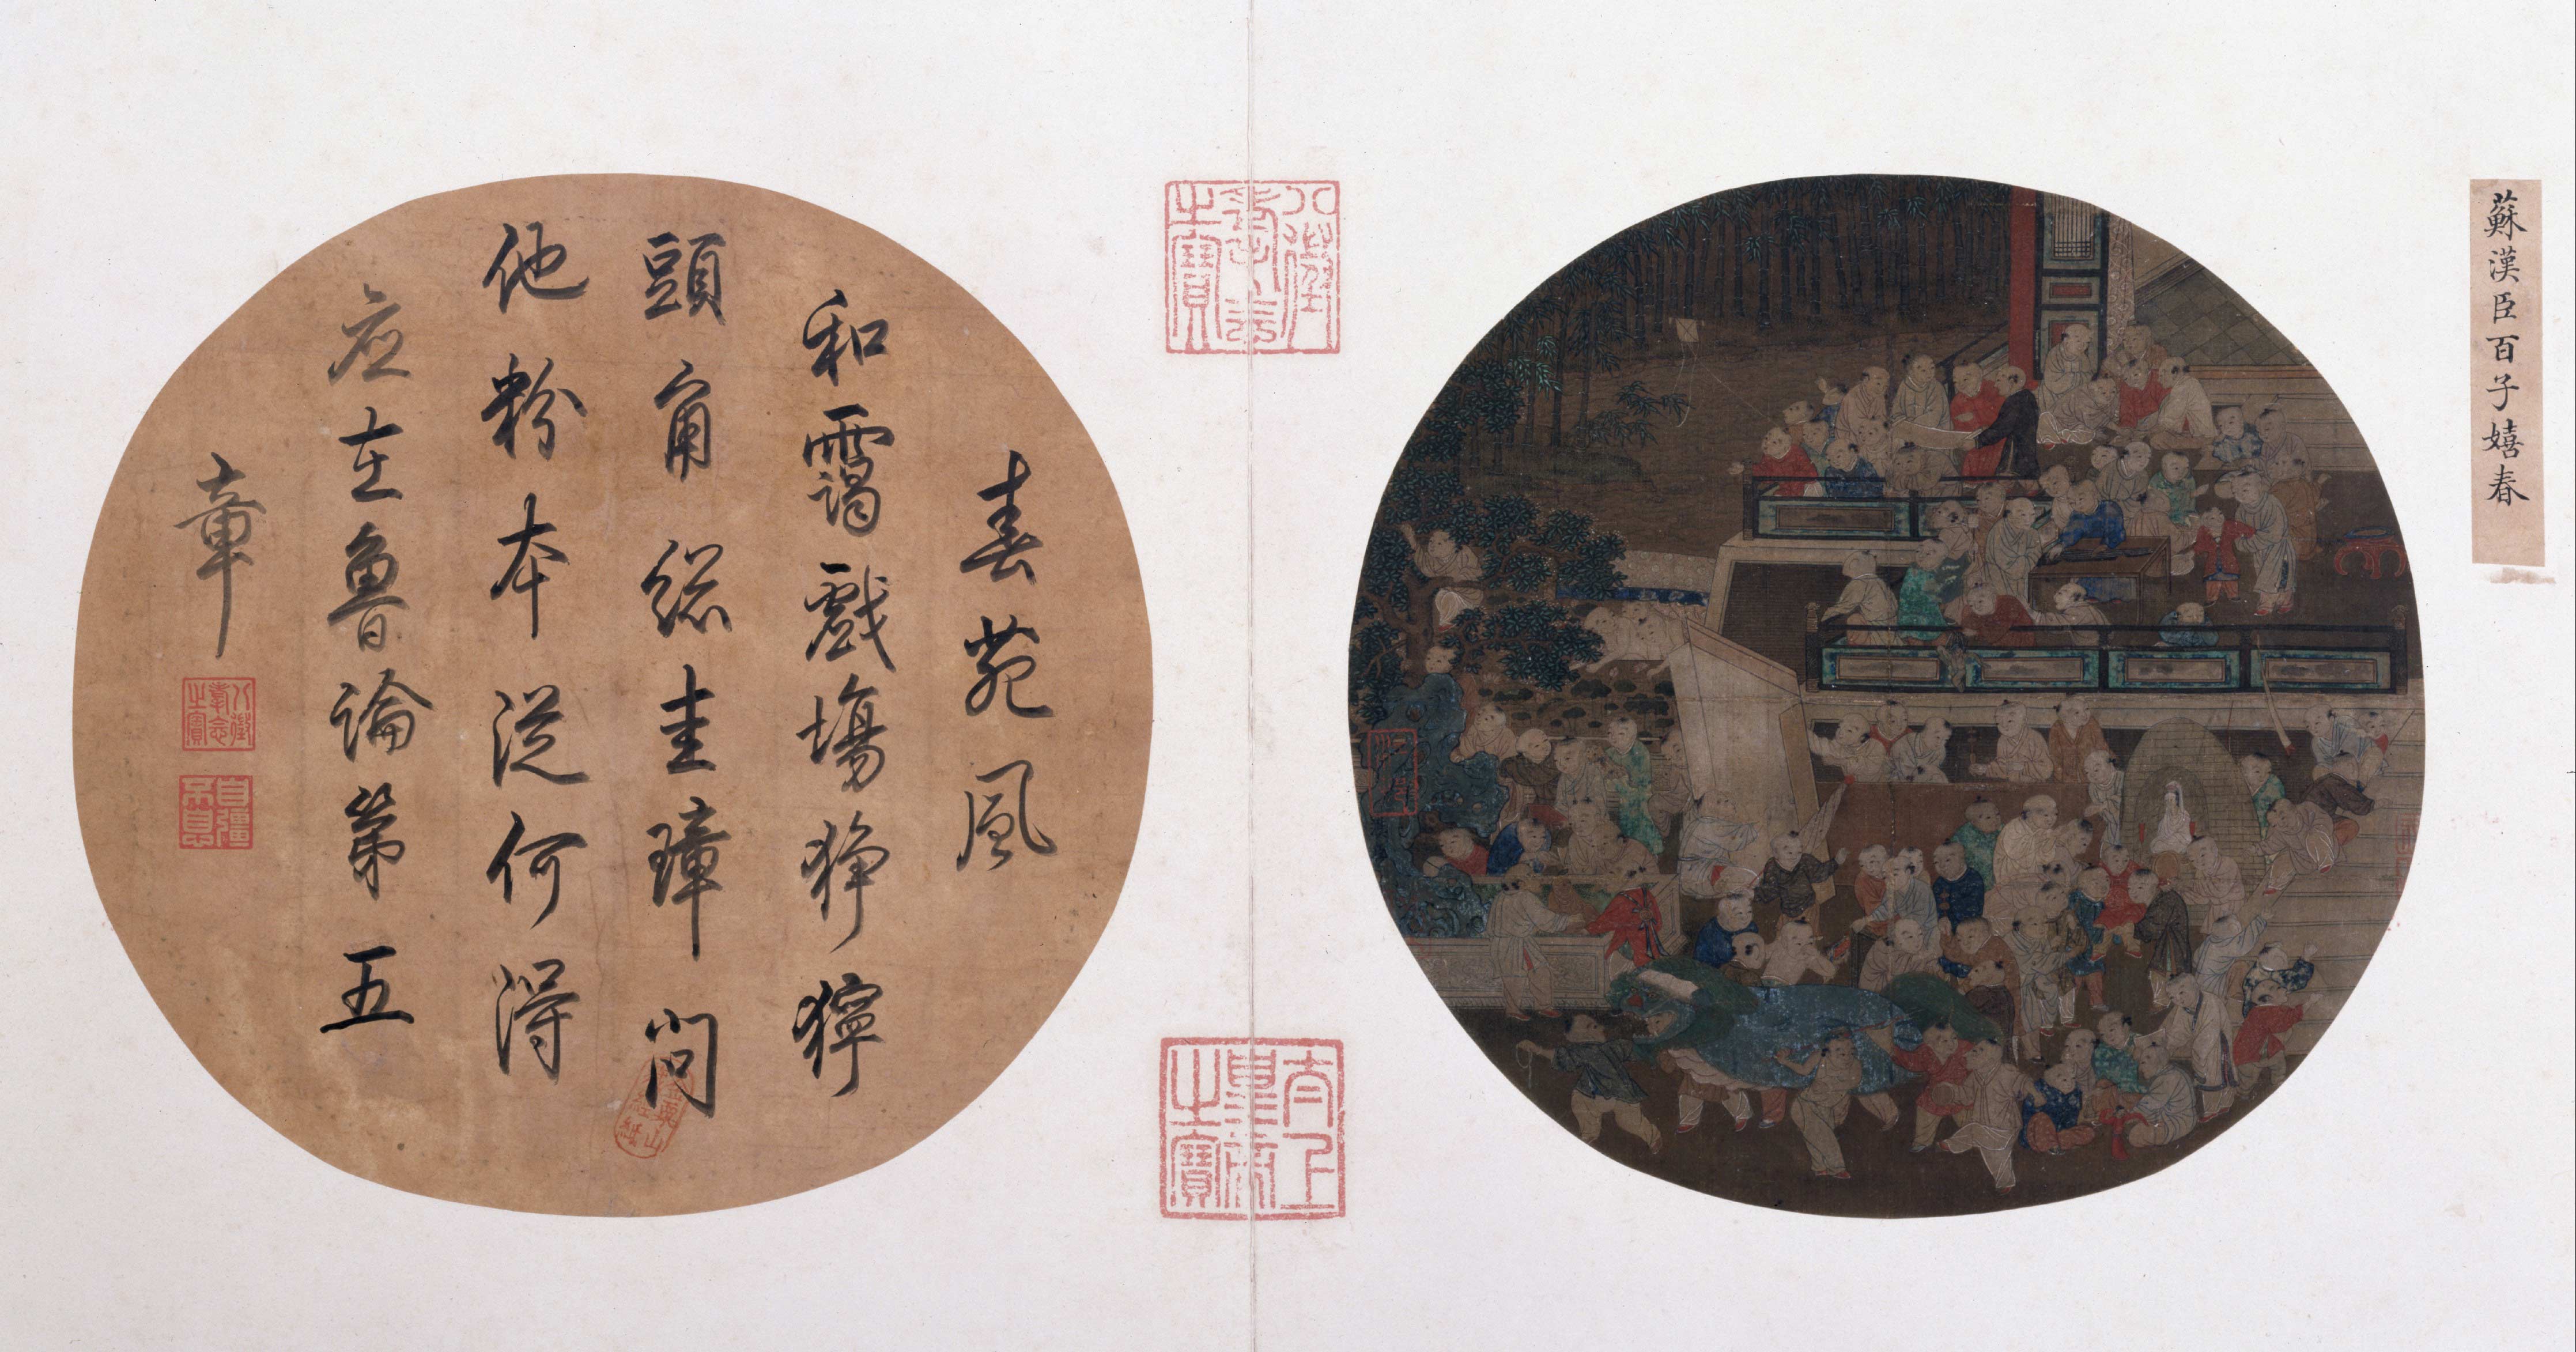 蘇漢臣百子嬉春
八徵耄念之寶
太上皇帝之寶
春苑風
和靄戲塲猙獰
頭角總圭璋問
他粉本從何得
應在魯論第五
章
八徵耄念之寶
自彊不息